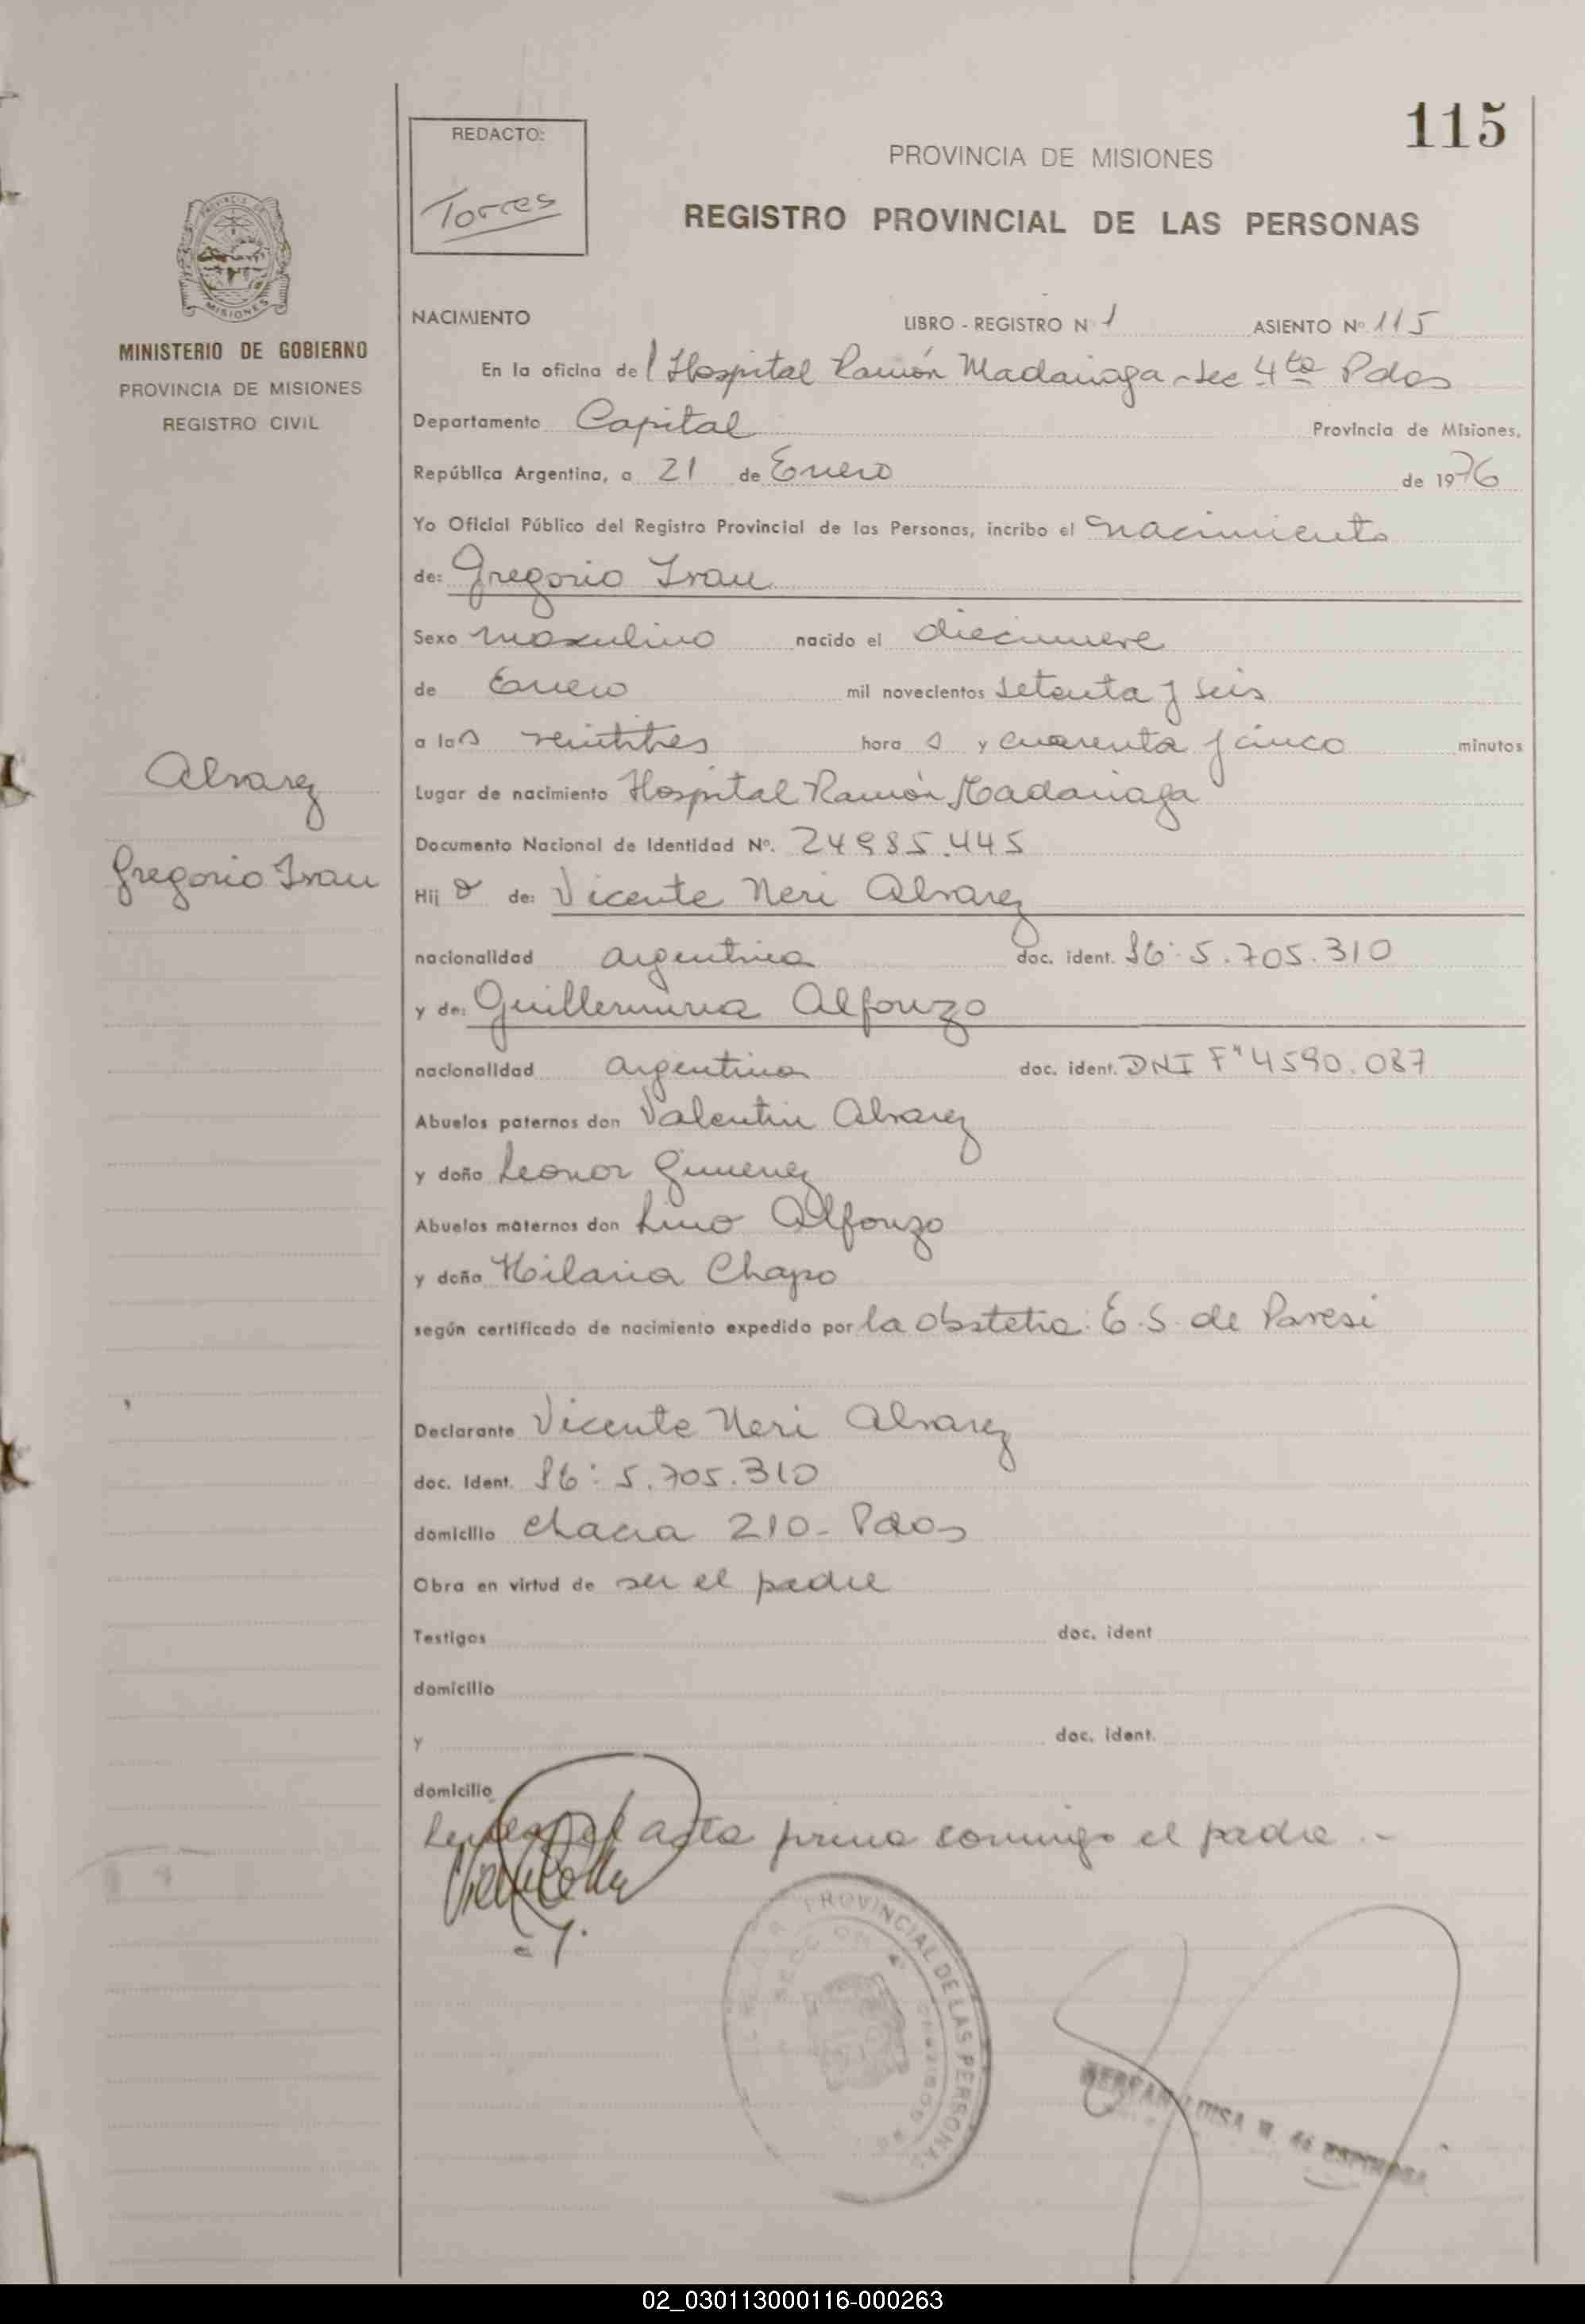 115
REDACTO:
Torres
PROVINCIA DE MISIONES
REGISTRO PROVINCIAL DE LAS PERSONAS
MISIONES
MINISTERIO DE GOBIERNO
PROVINCIA DE MISIONES
REGISTRO CIVIL
NACIMIENTO LIBRO - REGISTRO N 1 ASIENTO Nº 115
En la oficina de l Hospital Ramón Madariaga - Sec 4ta Pdas
Departamento Capital Provincia de Misiones,
República Argentina, a 21 de Enero de 1976
Yo Oficial Público del Registro Provincial de las Personas, incribo el nacimiento
de: Gregorio Ivan
Sexo masculino nacido el diecinueve
de Enero mil novecientos setenta y seis
a las veintitres hora s y cuarenta y cinco minutos
Alvarez
Lugar de nacimiento Hospital Ramón Madariaga
Documento Nacional de Identidad Nº. 24985.445
Gregorio Ivan
Hij o de: Vicente Neri Alvarez
nacionalidad argentina doc. ident. 5.705.310
y de: Guillermina Alfonzo
nacionalidad argentina doc. ident. DNI F" 4590.087
Abuelos paternos don Valentin Alvarez
y doña Leonor Gimenez
Abuelos maternos don Lino Alfonzo
y doña Hilaria Chapo
según certificado de nacimiento expedido por la obstetra: E.S. de Paresi
Declarante Vicente Neri Alvarez
doc. Ident. 5.705.310
domicilio chacra 210- Pdas
Obra en virtud de ser el padre
Testigos doc. ident
domicilio
y doc. ident.
domicilio
acta firma conmigo el padre.-
PROVINCIAL DE LAS PERSONAS
SECCION 4ª
LUISA W. de ESPINOSA
02_030113000116-000263